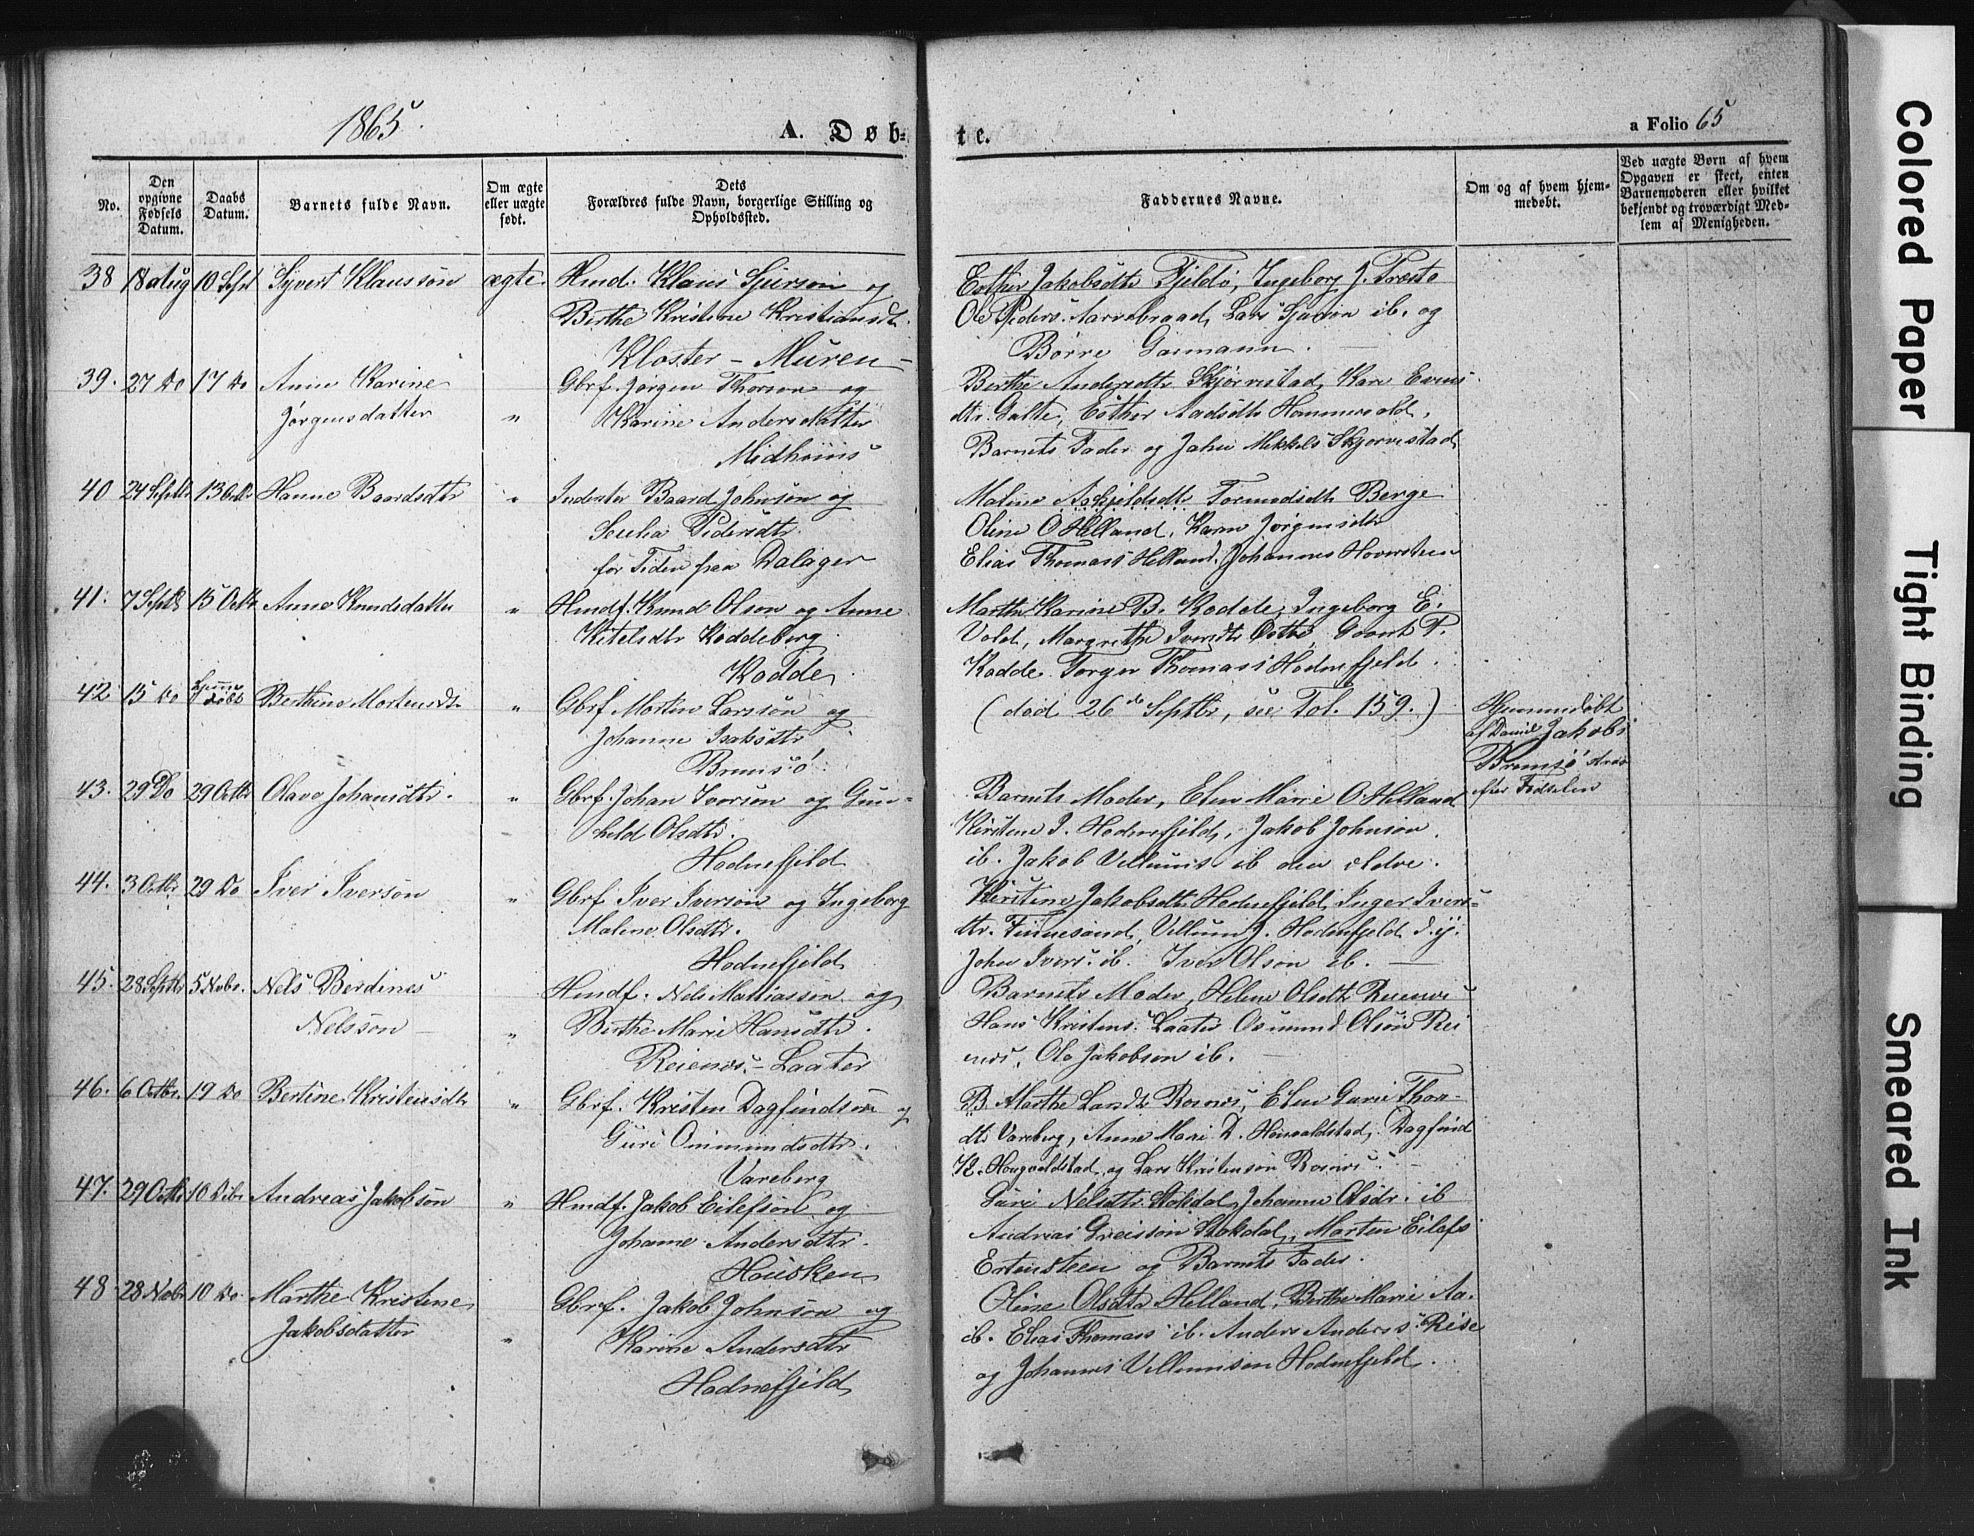 1865.
A. Døb-
te.
a Folio 65
No.
Den opgivne Fødsels Datum.
Daabs Datum.
Barnets fulde Navn.
Om ægte eller uægte født.
Dets
Forældres fulde Navn, borgerlige Stilling og
Opholdssted.
Faddernes Navne.
Om og af hvem hjem-
medøbt.
Ved uægte Børn af hvem
Opgaven er skeet, enten
Barnemoderen eller hvilket
bekjendt og troværdigt Med-
lem af Menigheden.
38 18 Aug 10 Sept Syvert Klausson ægte. Hmd. Klaus Sjurson og
Berthe Kristine Kristiansdtr.
Kloster - Muren -
Esther Jakobsdtr Fjeldø, Ingeborg J.
Ole Peders. Aarvebraad, Lars Sjurson ib. og
Børre Garmann.
39. 27 Do 17 Do Anne Karine
Jørgensdatter
" Gbrf. Jørgen Thorson og
Karine Andersdatter
Midhuus
Berthe Andersdtr Skjørvestad, Kari Evens
dtr. Galte, Esther Aadsdtr Hommersold,
Barnets Fader og John Mikkels Skjorvestad
40 24 Septbr 13 Octbr Hanne Baardsdtr " Inderster Baard Johnson og
Secilia Pedersdtr
for Tiden paa Dalager
Malene Tormodsdtr Berge
Oline O Helland, Karen Jørgensdtr
Elias Thomass Helland. Johannes Hoversteen
41. 7 Septbr 15 Octbr Anne Knudsdatter " Hmdf. Knud Olson og Anne
Ketelsdtr Koddeberg
Kodde
Marthe Karine B. Kodde, Ingeborg E.
Vold, Margrethe Iversdtr Østbø, Gaut P.
Kodde Torger Thomass Hodnefjeld.
42 15 Do Hjemme døbt Berthine Mortensdtr " Gbrf Morten Larsson og
Johanne Isaksdtr
Brimsø
(død 26de Septbr, see Fol. 159.)
Hjemmedøbt
af Daniel Jakobs
Brimsø strax
efter Fødselen
43. 29 Do 29 Octbr Olava Johansdtr. " Gbrf. Johan Iverson og Gun-
hild Olsdtr.
Hodnefjeld
Barnets Moder, Elen Marie O Helland
Kirstine I. Hodnefjeld, Jakob Johnson
ib. Jakob Villums ib den ældre.
44. 3 Octbr. 29 Do Iver Iverson " Gbrf Iver Iverson og Ingeborg
Malene Olsdtr.
Hodnefjeld
Kirstine Jakobsdtr Hodnefjeld, Inger Ivers-
dtr. Finnesand, Villum J. Hodnefjeld d.y.
John Ivers. ib. Iver Olson ib. —
45. 28 Septbr 5 Novbr. Nels Berdines
Nelsson -
" Hmdf. Nels Mathiasson og
Berthe Marie Hansdtr.
Reienæs - Laater
Barnets Moder, Helene Olsdtr Reienæs
Hans Kristens. Laater Osmund Olson Rei
enæs, Ole Jakobson ib. —
46. 6 Octbr. 19 Do Bertine Kristensdtr " Gbrf. Kristen Dagfindson og
Guri Ommundsdtr.
Vareberg
B. Marthe Larsdtr Rosnæs, Elen Gurie Thor-
dtr Vareberg, Anne Mari D. Hougvaldstad, Dagfind
K. Hougvaldstad og Lars Kristenson Rosnæs. -
47. 29 Octbr 10 Debr Andreas Jakobson " Hmdf. Jakob Eilefson og
Johanne Andersdtr.
Hausken
Guri Nelsdtr Stokdal, Johanne Olsdr. ib
Andreas Greisson Stokdal, Morten Eilefs
Ertensteen og Barnets Fader.
48. 28 Novbr 10 Do. Marthe Kristene
Jakobsdatter
" Gbrf. Jakob Johnson og
Karine Andersdtr
Hodnefjeld
Oline Olsdtr Helland, Berthe Marie Aa.
ib. Elias Thomass ib. Anders Anders s. Rise
og Johannes Villumson Hodnefjeld.
Colored Paper
Tight Binding
Smeared Ink